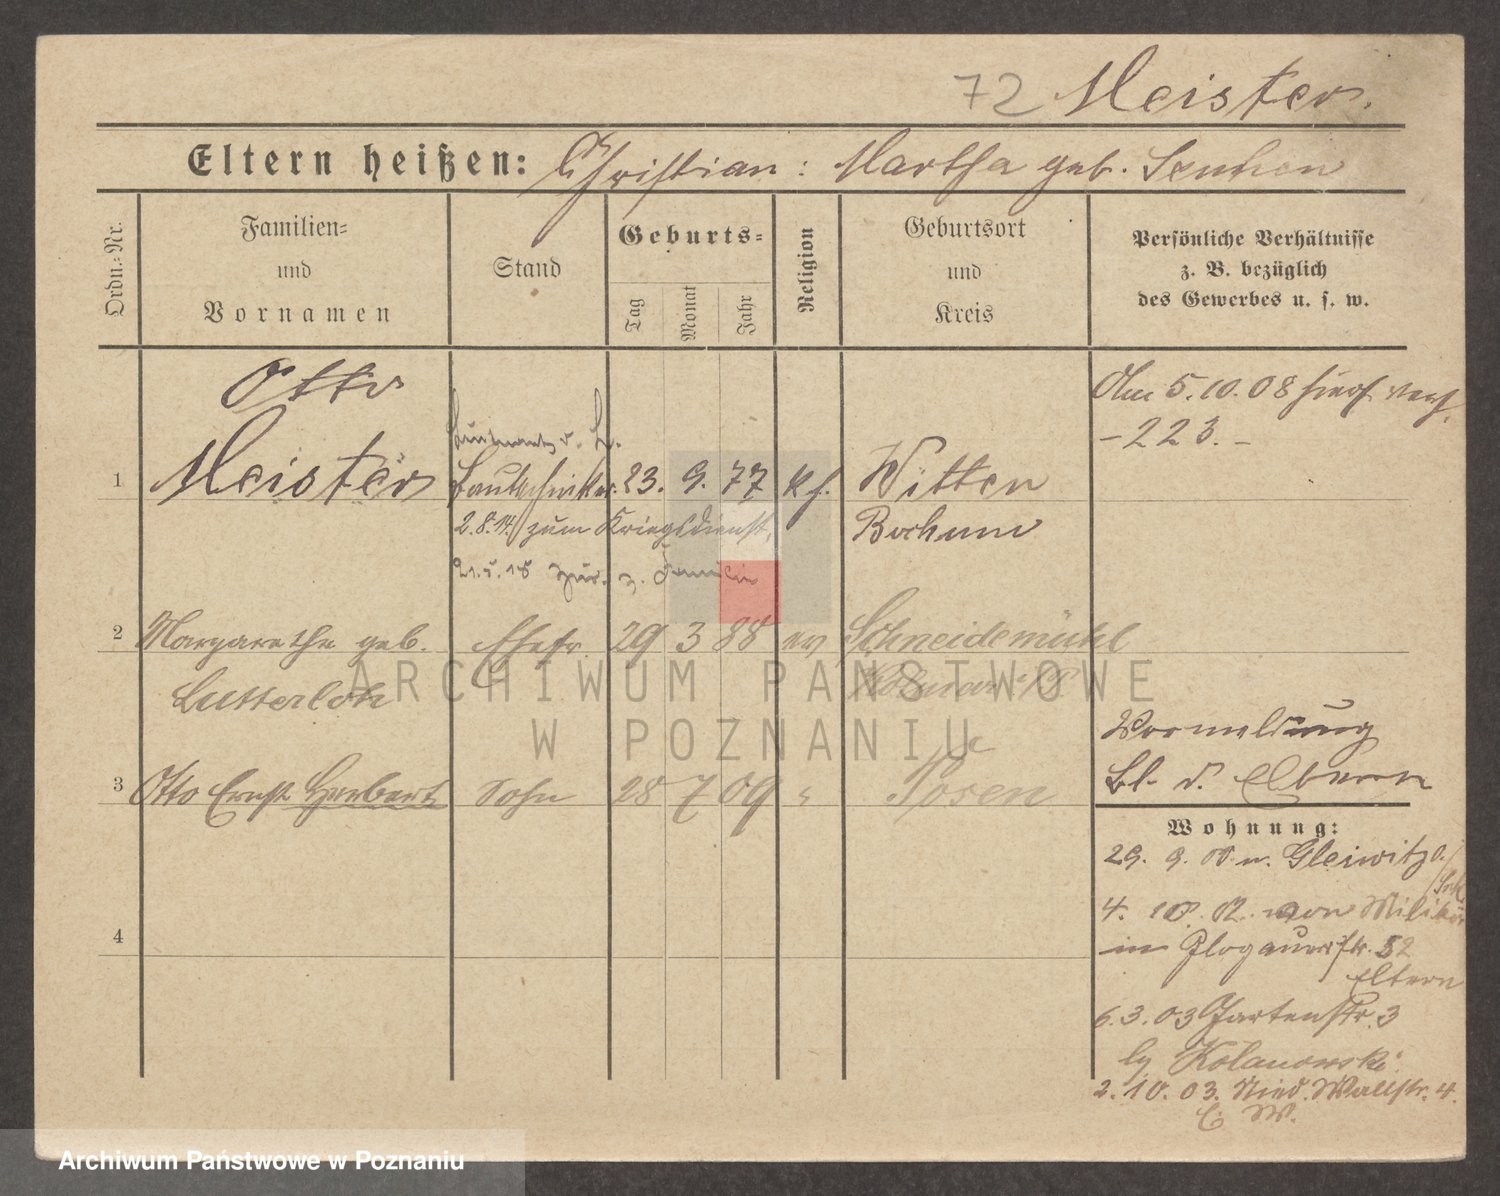 72 Meister.
Eltern heißen: Christian: Martha geb.
Ordn.-Nr.
Familien-
und
Vornamen
Stand
Geburts-
Tag
Monat
Jahr
Religion
Geburtsort
und
Kreis
Persönliche Verhältnisse
z. B. bezüglich
des Gewerbes u. s. w.
Otto
Am 5.10.08 hier verh.
- 223. -
1 Meister 23. 9. 77 Witten
2.8.14. zum Kriegsdienst, Bochum
21.5.18 zur. z. Familie
2 Margarethe geb. Ehefr. 29 3 88 ev Schneidemühl
Lutterloh
ARCHIWUM PAŃSTWOWE
W POZNANIU
Vormeldung
Bl. d. Eltern
3 Otto Ernst Herbert Sohn 28 7 09 " Posen
Wohnung:
29. 9. 00. n. Gleiwitz
4. 10. 02. von Militär
in Glogauerstr. 52
Eltern
6.3.03 Gartenstr. 3
by Kolanowski
2.10.03. Nied. Wallstr. 4.
b. W.
4
Archiwum Państwowe w Poznaniu